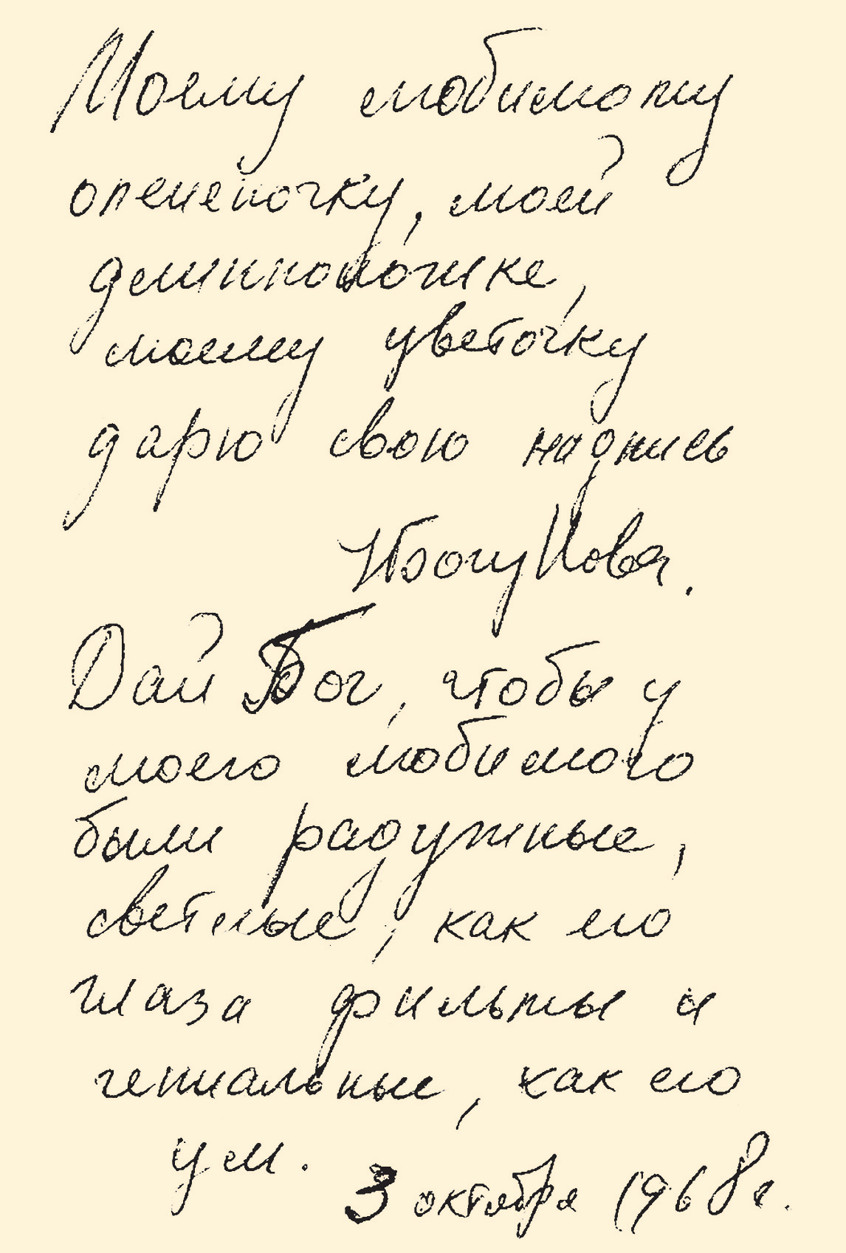 Моему любимому
оленёночку, моей
длинноножке,
моему цветочку
дарю свою надпись
НБогунова.
Дай Бог, чтобы у
моего любимого
были радужные,
светлые, как его
глаза фильмы и
гениальные, как его
ум.
3 октября 1968г.